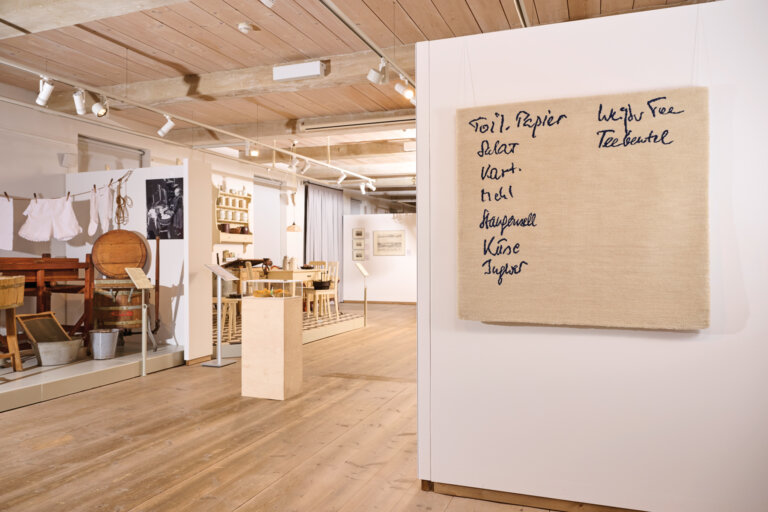 Toil. Papier
Salat
Kart.
Mehl
Stangensell
Käse
Ingwer
Weißer Tee
Teebeutel